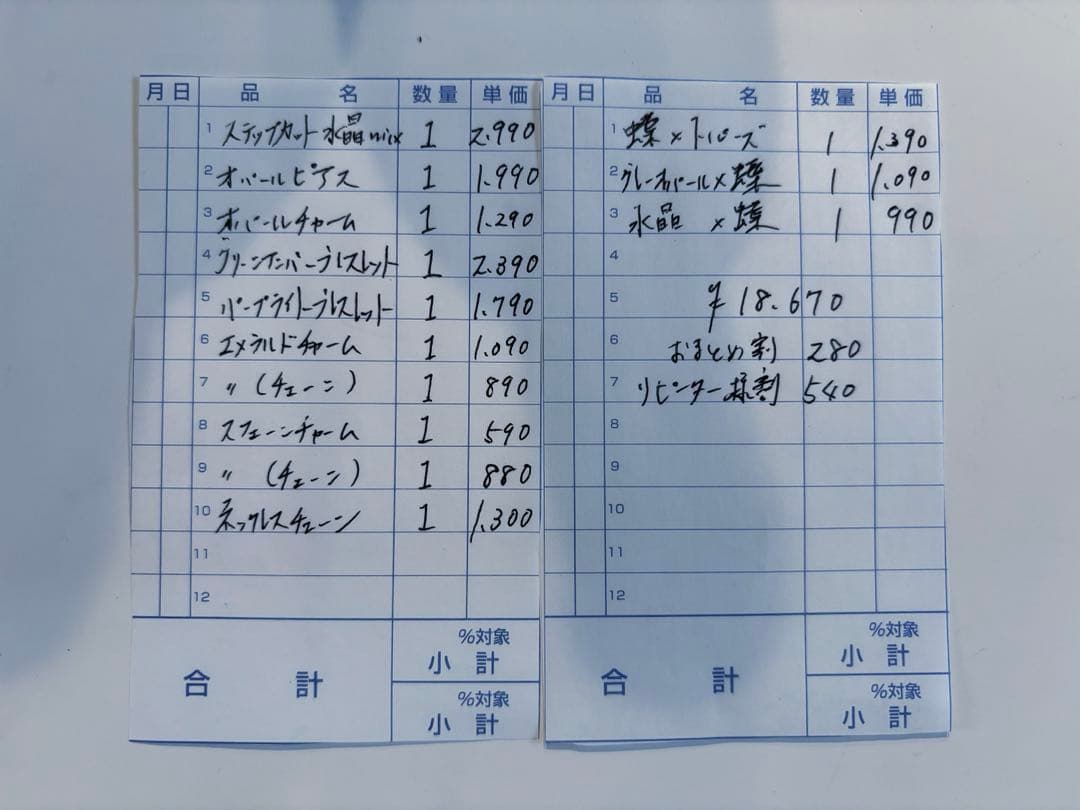 月 日 品 名 数量 単価
1 ステップカット水晶mix 1 2.990
2 オパールピアス 1 1.990
3 オパールチャーム 1 1.290
4 グリーンアンバーブレスレット 1 2.390
5 パープライトブレスレット 1 1.790
6 エメラルドチャーム 1 1.090
7 〃 (チェーン) 1 890
8 スフェーンチャーム 1 590
9 〃 (チェーン) 1 880
10 ネックレスチェーン 1 1.300
11
12
合 計
%対象
小 計
%対象
小 計
月 日 品 名 数量 単価
1 蝶×トパーズ 1 1.390
2 グレーオパール×蝶 1 1.090
3 水晶 ×蝶 1 990
4
5 ¥18.670
6 おまとめ割 280
7 リピーター様割 540
8
9
10
11
12
合 計
%対象
小 計
%対象
小 計